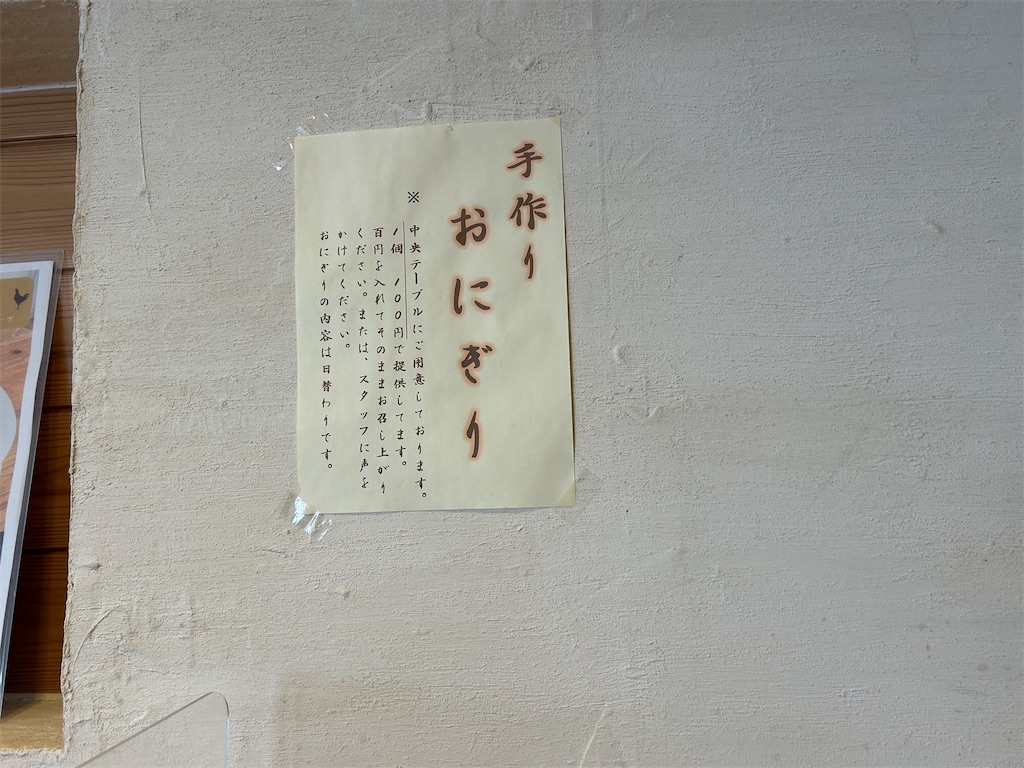 手作り
おにぎり
※
中央テーブルにご用意しております。
1個 100円で提供してます。
百円を入れてそのままお召し上がり
ください。または、スタッフに声を
かけてください。
おにぎりの内容は日替わりです。